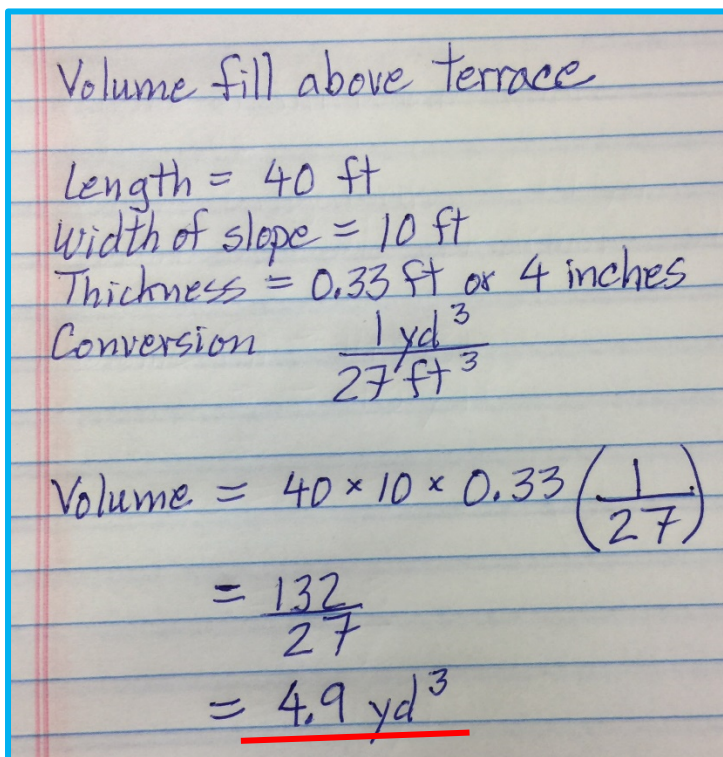 Volume fill above terrace
Length = 40 ft
Width of slope = 10 ft
Thickness = 0.33 ft or 4 inches
Conversion 1 yd³ / 27 ft³
Volume = 40 × 10 × 0.33 (1/27)
= 132/27
= 4.9 yd³